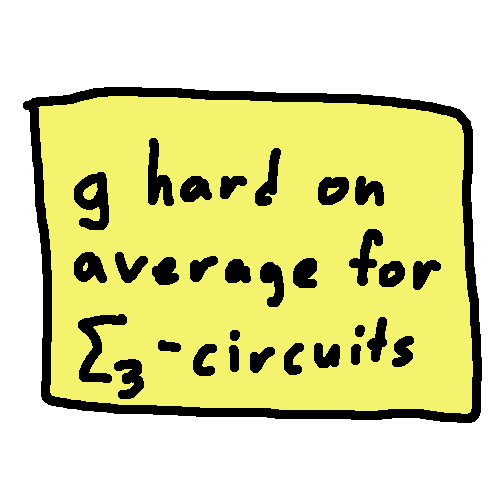 g hard on
average for
Σ₃-circuits